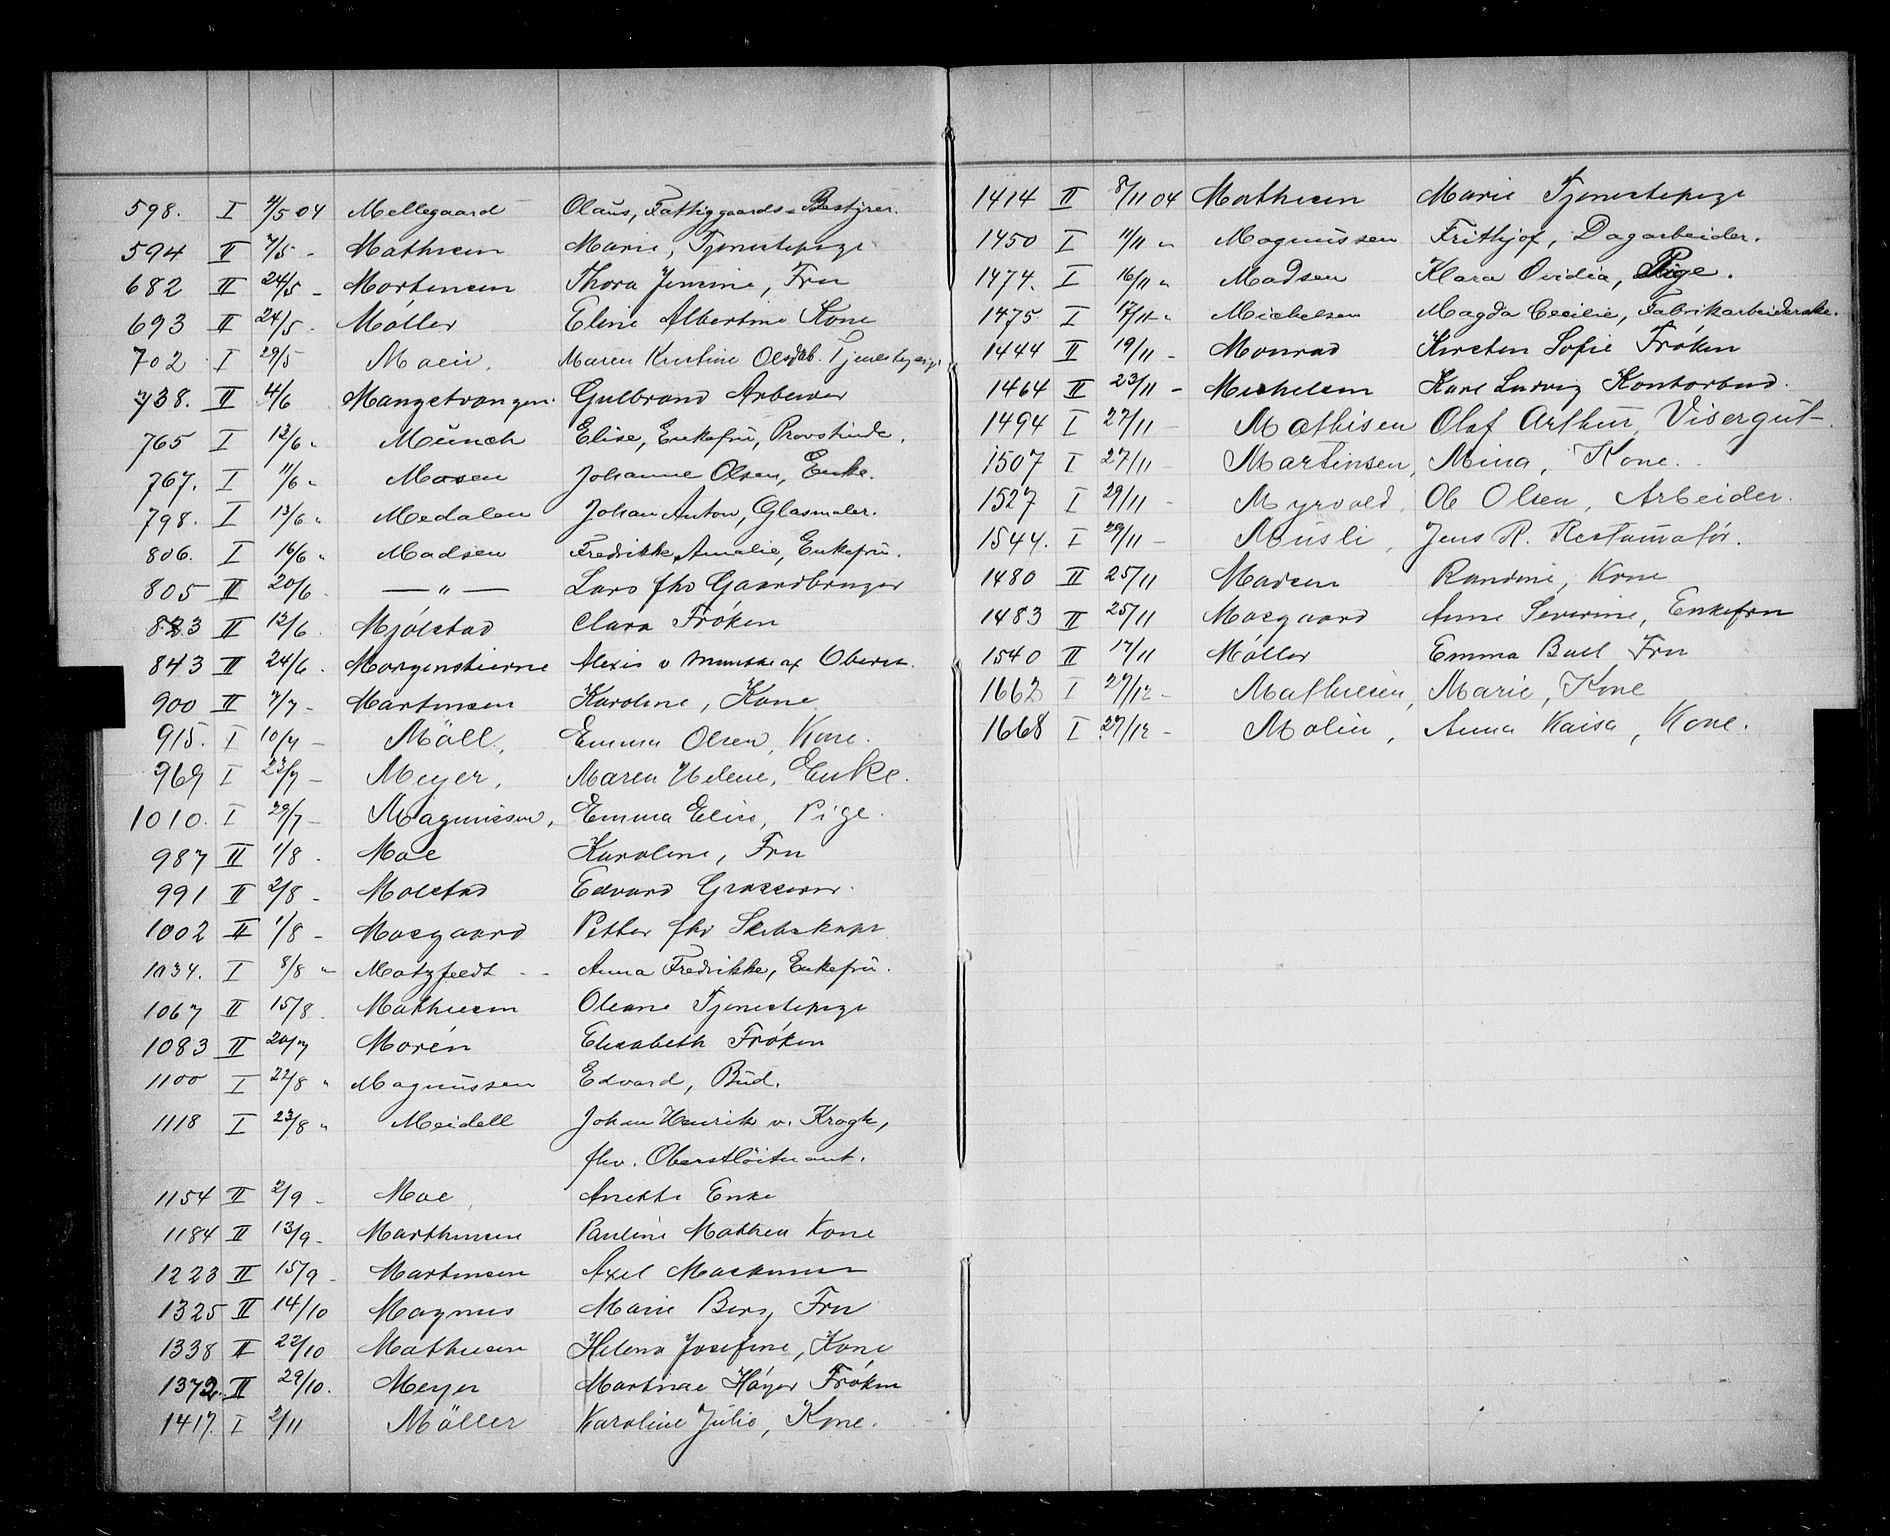 598. I 7/5 04 Mellegaard Olaus, Fattiggaards-Bestyrer.
594 II 7/5 - Mathiesen Marie, Tjenestepige
682 II 24/5 - Mortensen Thora Jensine, Fru
693 II 24/5 - Møller Eline Albertine Kone
702 I 29/5 Maen, Maren Kristine Olsdtb. Tjenestepige
738. II 4/6 Mangstvangen. Gulbrand Arbeider
765 I 13/6 " Münch Elise, Enkefru, Provstinde.
767. I 11/6 " Mosen Johanne Olsen, Enke.
798. I 13/6 " Medalen Johan Anton, Glasmaler.
806. I 16/6 " Madsen Fredrikke Amalie, Enkefru.
805 II 20/6 - — " — Lars fhv Gaardbruger
823 II 12/6 Mjølstad Clara Frøken
843 II 24/6. Morgenstierne Alexis v Munthe af Oberst.
900 II 7/7 - Martinsen Karoline, Kone
915. I 10/7 - Möll, Emma Olsen, Kone.
969 I 23/7 - Meyer, Maren Helene, Enke.
1010. I 29/7 - Magnussen, Emma Elise, Pige.
987 II 1/8 - Moe Karoline, Fru
991 II 2/8 - Molstad Edvard Grosserer
1002 II 1/8 - Mosgaard Petter fhv Skibskapt
1034. I 8/8 " Motzfeldt - - Anna Fredrikke, Enkefru.
1067 II 15/8 - Mathiesen Oleane Tjenestepige
1083 II 20/7 Morén Elisabeth Frøken
1100 I 22/8 " Magnussen Edvard, Bud.
1118 I 23/8 " Meidell Johan Henrik v. Krogh,
fhv. Oberstlöitnant.
1154 II 2/9 - Moe, Anette Enke
1184 II 13/9 - Marthinsen Pauline Mathea Kone
1223 II 15/9 - Martinsen Axel Maskinist
1325 II 14/10 Magnus Marie Berg Fru
1338 II 22/10 Mathiesen Helena Josefine, Kone
1372. II 29/10. Meyer Martinae Høyer Frøken
1417. I 2/11 Möller Karoline Julie, Kone.
1414 II 8/11 04 Mathiesen Marie Tjenestepige
1450 I 11/11 " Magnussen Frithjof, Dagarbeider.
1474. I 16/11 " Madsen Klara Ovidia, Pige.
1475 I 17/11 - " Michelsen Magda Cecilie, Fabrikarbeiderske.
1444 II 19/11 - Monrad Kirsten Sofie Frøken
1464 II 23/11 - Michelsen Karl Ludvig Kontorbud.
1494 I 27/11 - Mathisen Olaf Arthur, Visergut.
1507 I 27/11 Martinsen, Mina, Kone.
1527 I 29/11 - Myrvold, Ole Olsen, Arbeider.
1544. I 29/11 - Musli, Jens R. Restauratør.
1480 II 25/11 Madsen Randine, Kone
1483 II 25/11 Mosgaard Anne Severine, Enkefru
1540 II 17/11 Møller Emma Bull Fru
1662 I 27/12 - Mathiesen, Marie, Kone
1668 I 27/12 - Molin, Anna Kaisa, Kone.